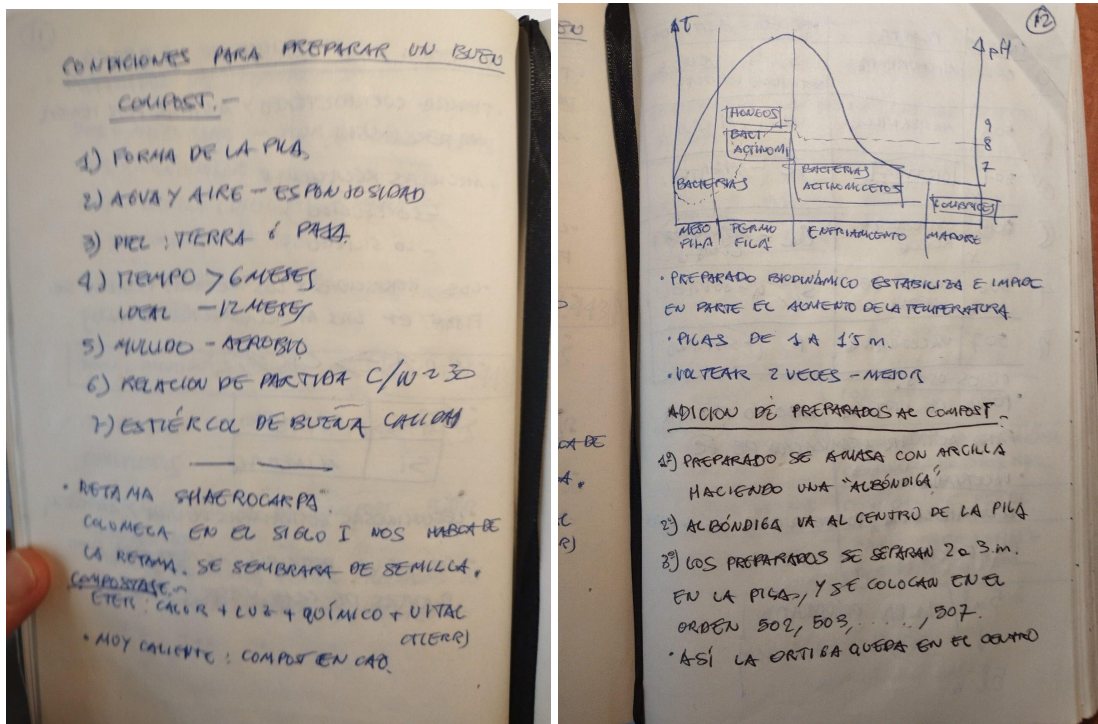 CONDICIONES PARA PREPARAR UN BUEN
COMPOST.-
1) FORMA DE LA PILA.
2) AGUA Y AIRE - ESPONJOSIDAD
3) PIEL : TIERRA ó PAJA.
4) TIEMPO > 6 MESES
IDEAL - 12 MESES
5) MULLIDO - AEROBIO
6) RELACION DE PARTIDA C/N ≈ 30
7) ESTIÉRCOL DE BUENA CALIDAD
• RETAMA SHAEROCARPA:
COLUMELA EN EL SIGLO I NOS HABLA DE
LA RETAMA. SE SEMBRARA DE SEMILLA.
COMPOSTAJE.-
ETER : CALOR + LUZ + QUÍMICO + VITAL
(TIERR)
• MUY CALIENTE : COMPOST EN CAO.
12
T
pH
HONGOS
BACT.
ACTINOMI
9
8
7
BACTERIAS
BACTERIAS
ACTINOMICETOS
LOMBRICES
MESO
FILA
TERMO
FILA
ENFRIAMIENTO
MADURE
• PREPARADO BIODINÁMICO ESTABILIZA E IMPIDE
EN PARTE EL AUMENTO DE LA TEMPERATURA.
• PILAS DE 1 A 1'5 m.
• VOLTEAR 2 VECES - MEJOR
ADICION DE PREPARADOS AL COMPOST.-
1º) PREPARADO SE AMASA CON ARCILLA
HACIENDO UNA "ALBÓNDIGA"
2º) ALBÓNDIGA VA AL CENTRO DE LA PILA
3º) LOS PREPARADOS SE SEPARAN 2 a 3 m.
EN LA PILA, Y SE COLOCAN EN EL
ORDEN 502, 503, . . . . , 507.
• ASÍ LA ORTIGA QUEDA EN EL CENTRO